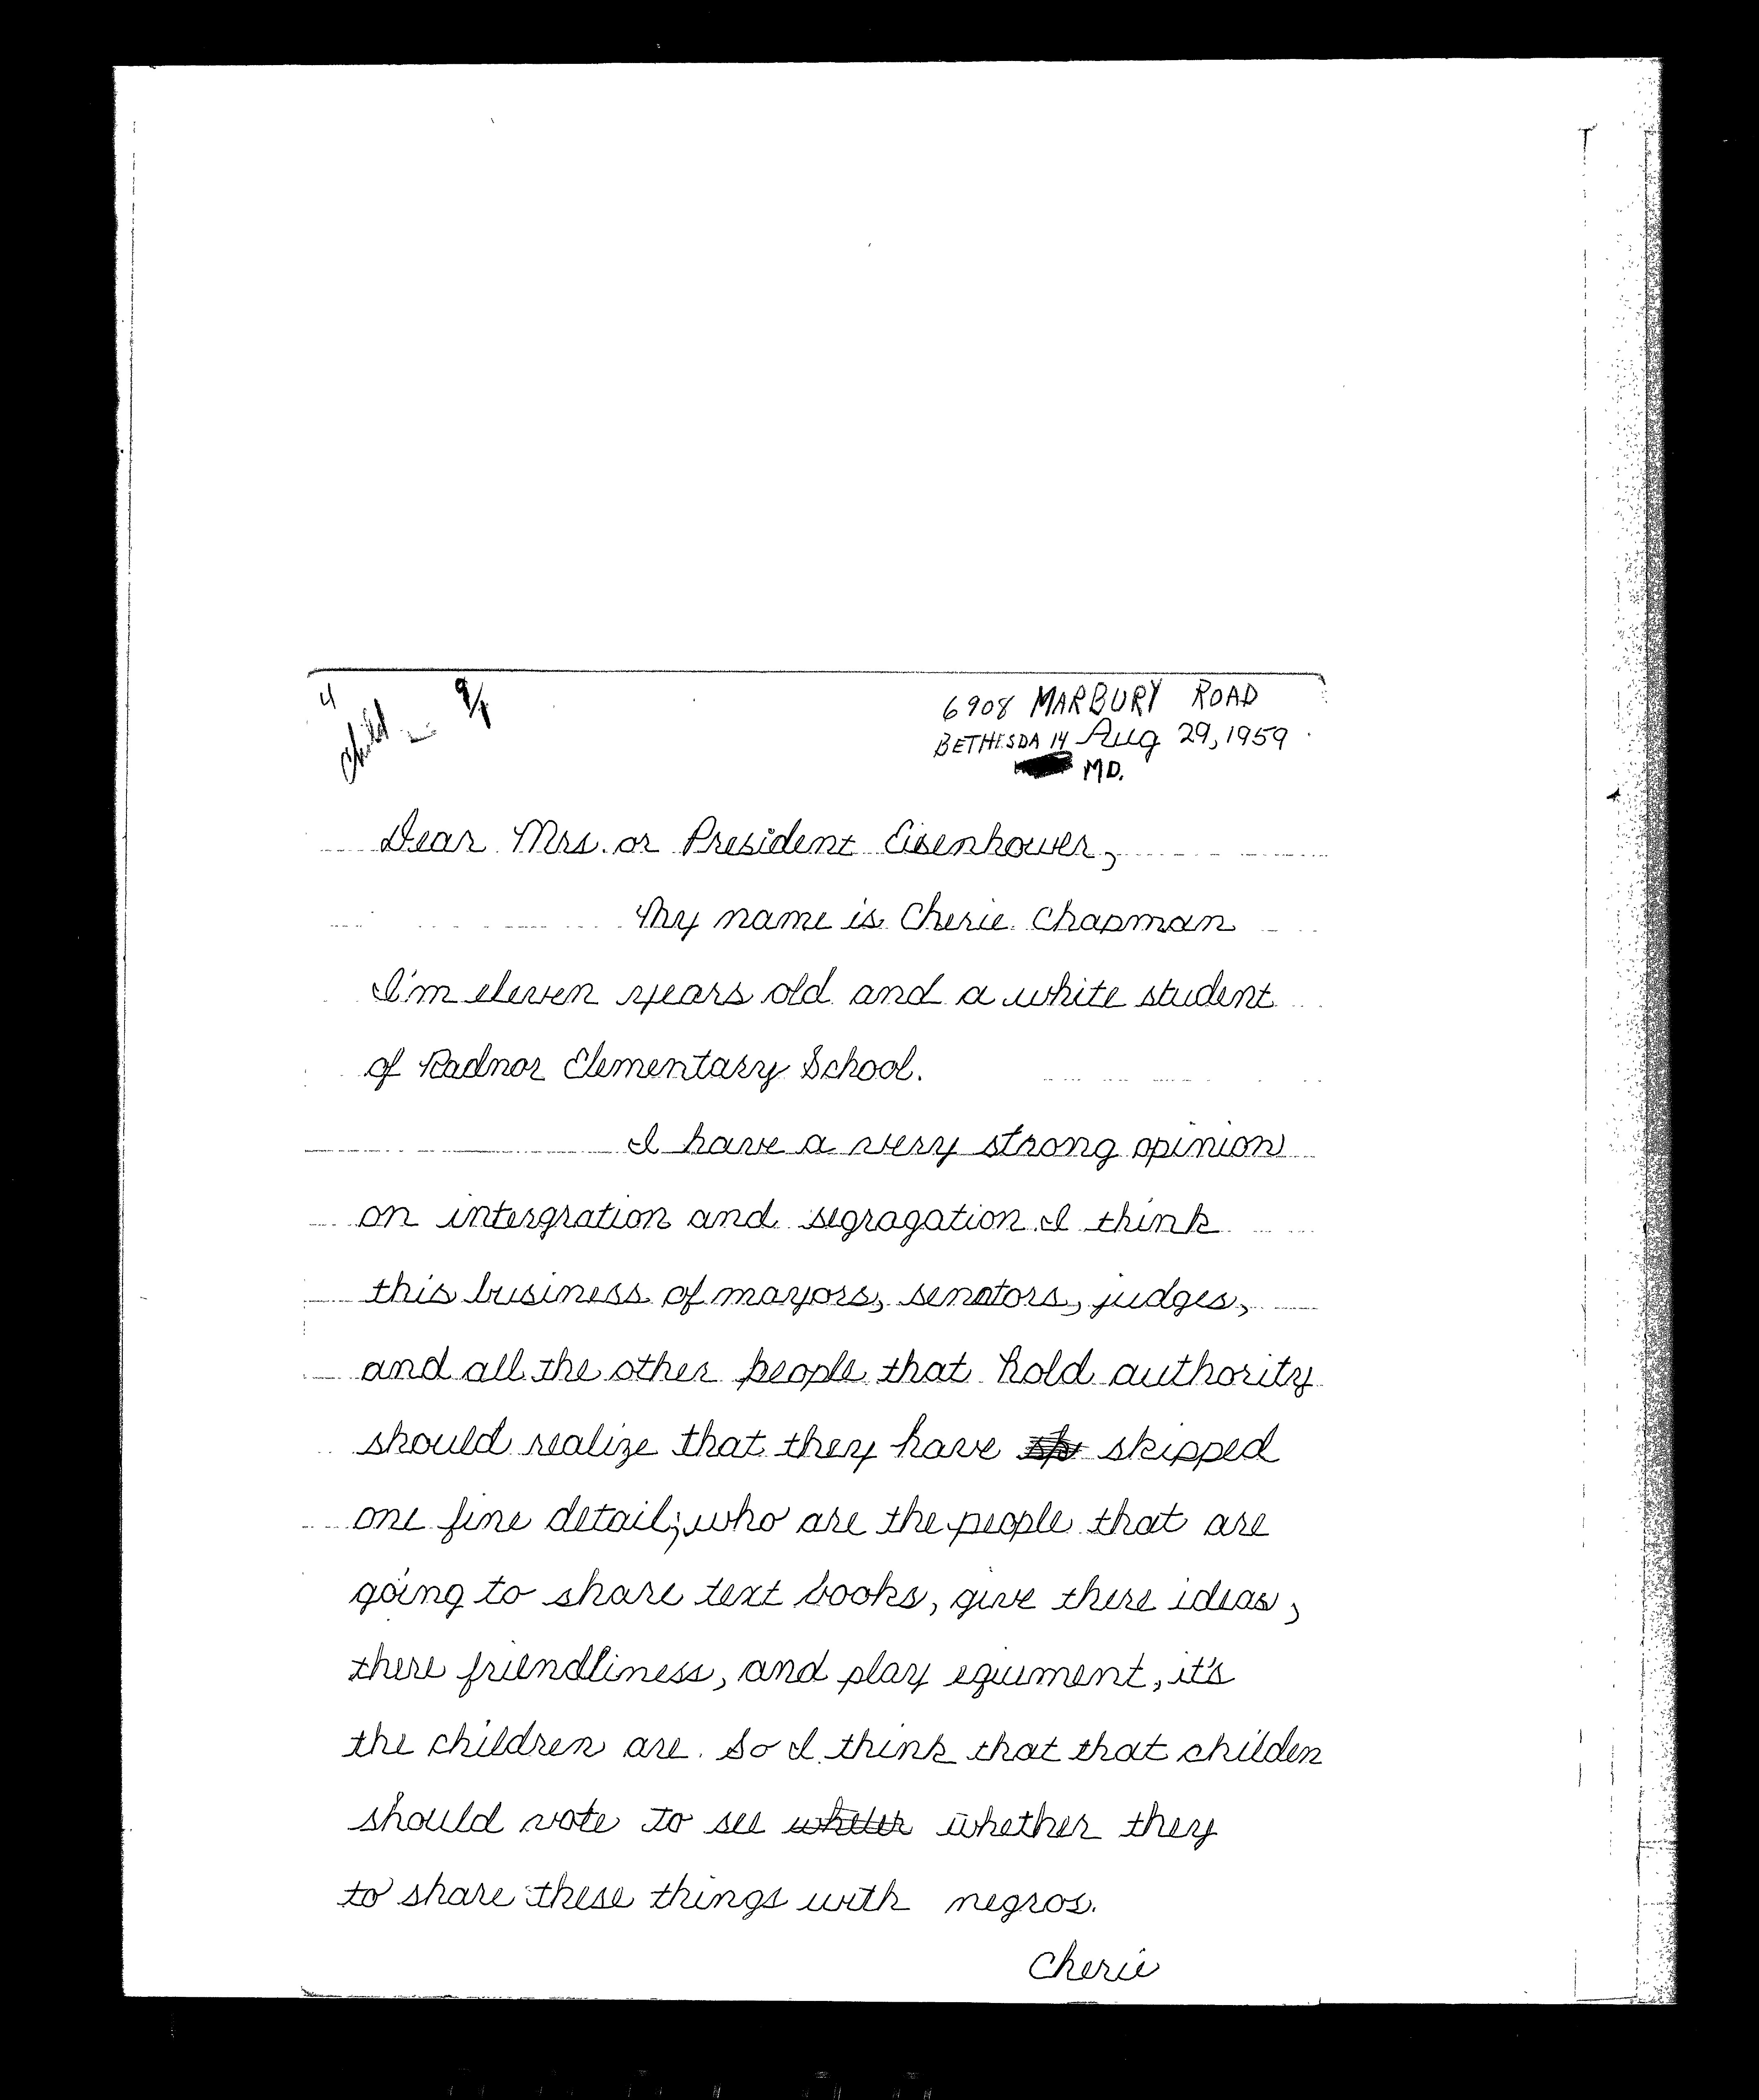 4
child - 9/1
6908 MARBURY ROAD
BETHESDA 14 Aug 29, 1959
MD.
Dear Mrs. or President Eisenhower,
My name is Cherie Chapman
I'm eleven years old and a white student
of Radnor Elementary School.
I have a very strong opinion
on intergration and segragation. I think
this business of mayors, senators, judges,
and all the other people that hold authority
should realize that they have skipped
one fine detail; who are the people that are
going to share text books, give there ideas,
there friendliness, and play equiment, it's
the children are. So I think that that childen
should vote to see wheter whether they
to share these things with negros.
Cherie